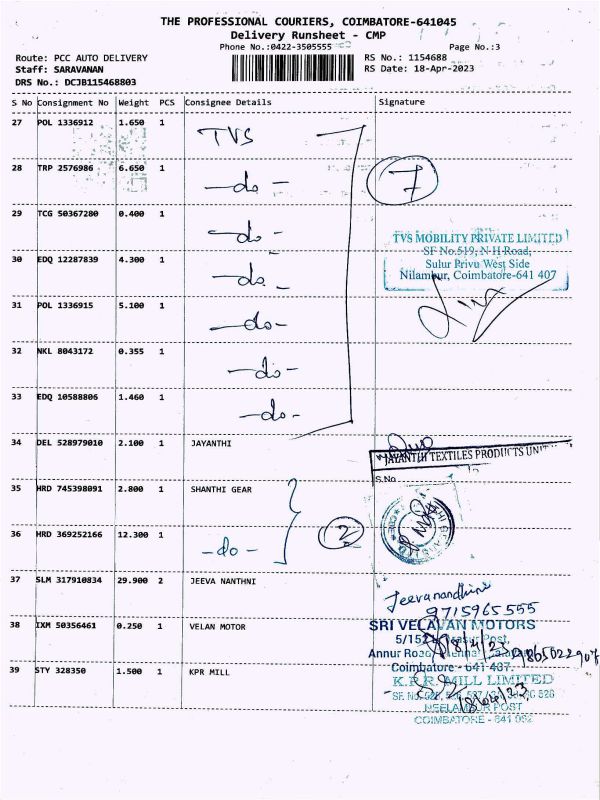 THE PROFESSIONAL COURIERS, COIMBATORE-641045
Delivery Runsheet - CMP
Phone No.:0422-3505555
Page No.:3
Route: PCC AUTO DELIVERY
RS No.: 1154688
Staff: SARAVANAN
RS Date: 18-Apr-2023
DRS No.: DCJB115468803
S No Consignment No Weight PCS Consignee Details Signature
27 POL 1336912 1.650 1 TVS
28 TRP 2576986 6.650 1 -do-
7
29 TCG 50367280 0.400 1 -do-
TVS MOBILITY PRIVATE LIMITED
SF No.519, N H Road,
30 EDQ 12287839 4.300 1 -do-
Sulur Privu West Side
Nilambur, Coimbatore-641 407
31 POL 1336915 5.100 1 -do-
32 NKL 8043172 0.355 1 -do-
33 EDQ 10588806 1.460 1 -do-
34 DEL 528979010 2.100 1 JAYANTHI
JAYANTHI TEXTILES PRODUCTS UNIT
S.No
35 HRD 745398091 2.800 1 SHANTHI GEAR
2
36 HRD 369252166 12.300 1 -do-
37 SLM 317910834 29.900 2 JEEVA NANTHNI
Jeevanandhini
9715965555
38 IXM 50356461 0.250 1 VELAN MOTOR
SRI VELAVAN MOTORS
5/152
Post,
Annur Road,
9865022907
Coimbatore - 641-407.
39 STY 328350 1.500 1 KPR MILL
K.P.R. MILL LIMITED
18/04/23
NEELAMBUR POST
COIMBATORE - 641 062